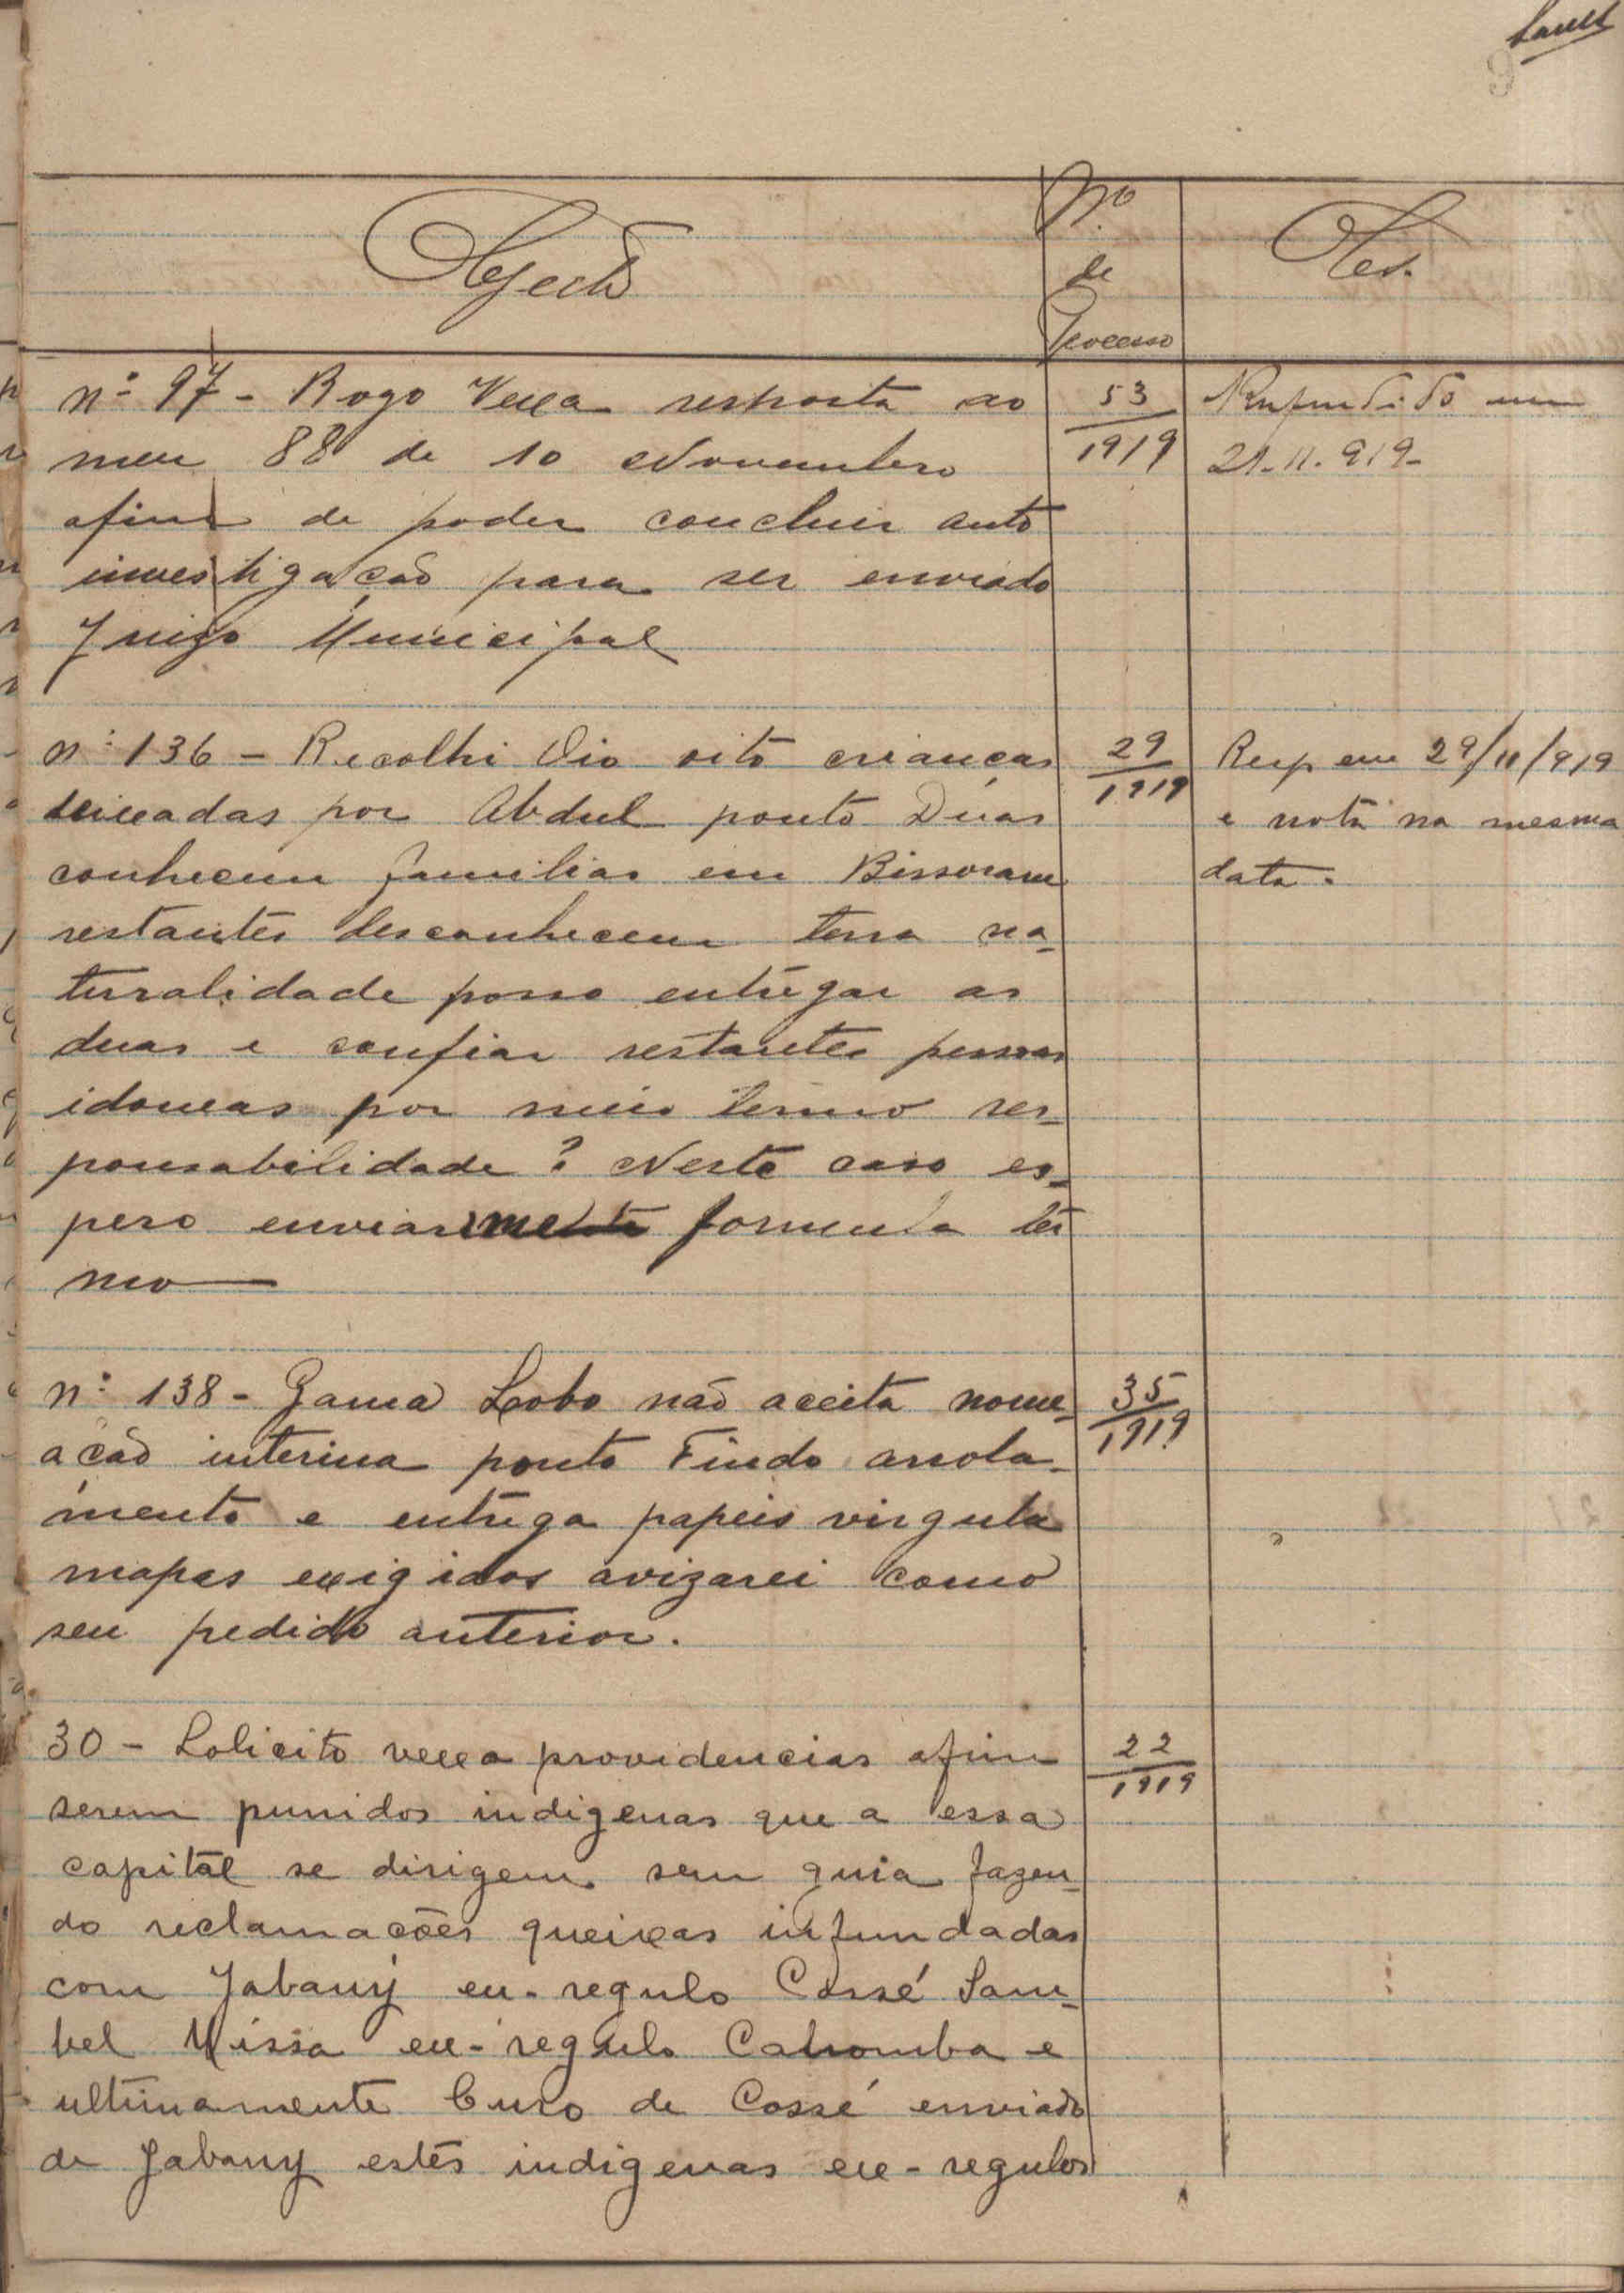 Objecto
Nº
de
Processo
Obs.
nº 97 - Rogo Vexa resposta ao
meu 88 de 10 Novembro
afim de poder concluir auto
investigação para ser enviado
Juizo Municipal
53
1919
Respondido em
21-11-919-
nº 136 - Recolhi Oio oito crianças
deixadas por Abdul ponto Duas
conhecem familias em Bissoram
restantes desconhecem terra na-
turalidade posso entregar as
duas e confiar restantes pessoas
idoneas por meio termo res-
ponsabilidade? Neste caso es-
pero enviar-me formula ter
mo
29
1919
Resp em 29/11/919
e nota na mesma
data.
nº 138 - Gama Lobo não aceita nome-
ação interina ponto Findo arrola-
mento e entrega papeis virgula
mapas exigidos avizarei como
seu pedido anterior.
35
1919
30 - Solicito vexa providencias afim
serem punidos indigenas que a essa
capital se dirigem sem guia fazen-
do reclamações queixas infundadas
com Jabany ex-regulo Cossé Sam-
bel Nissa ex-regulo Cahomba e
ultimamente de Cossé enviado
de Jabany estes indigenas ex-regulos
22
1919